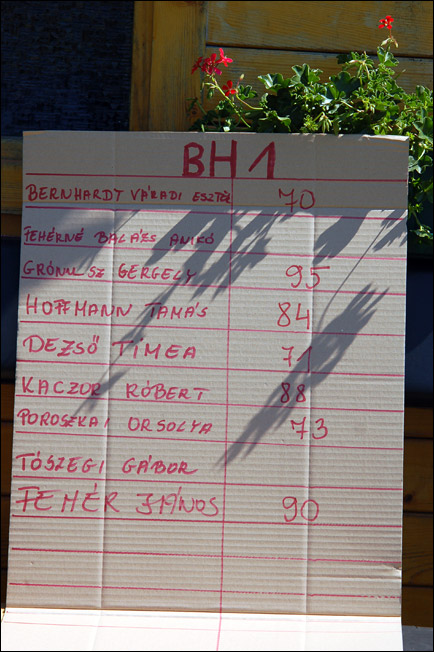 BH1
BERNHARDT VÁRADI ESZTER 70
FEHÉRNÉ BALÁZS ANIKÓ
GRÓNUSZ GERGELY 95
HOFFMANN TAMÁS 84
DEZSŐ TÍMEA 71
KACZOR RÓBERT 88
POROSZKAI ORSOLYA 73
TÓSZEGI GÁBOR
FEHÉR JÁNOS 90